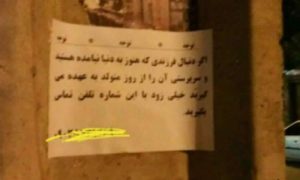 توجه توجه توجه
اگر دنبال فرزندی که هنوز به دنیا نیامده هستید
و سرپرستی آن را از روز متولد به عهده می
گیرید خیلی زود با این شماره تلفن تماس
بگیرید.